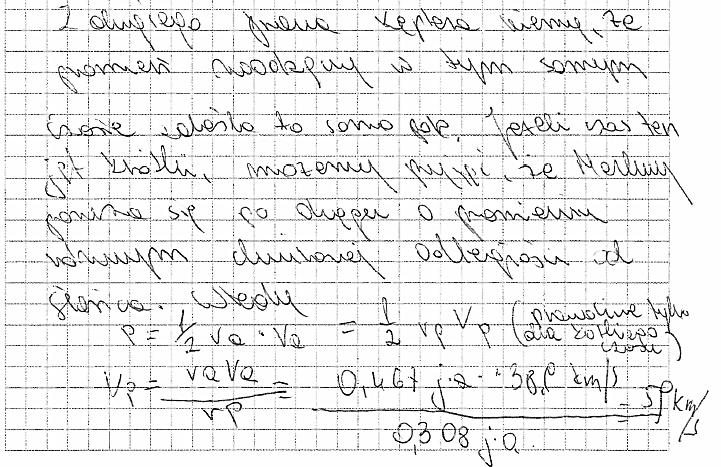 Z drugiego prawa Keplera wiemy, że
promień wodzący w tym samym
czasie zakreśla to samo pole. Jeżeli czas ten
jest krótki, możemy przyjąć, że Merkury
porusza się po okręgu o promieniu
równym chwilowej odległości od
słońca. Wtedy
P = 1/2 ra · Va = 1/2 rp Vp (prawdziwe tylko dla krótkiego czasu)
Vp = ra Va / rp = 0,467 j.a. · 38,9 km/s / 0,308 j.a. = 59 km/s